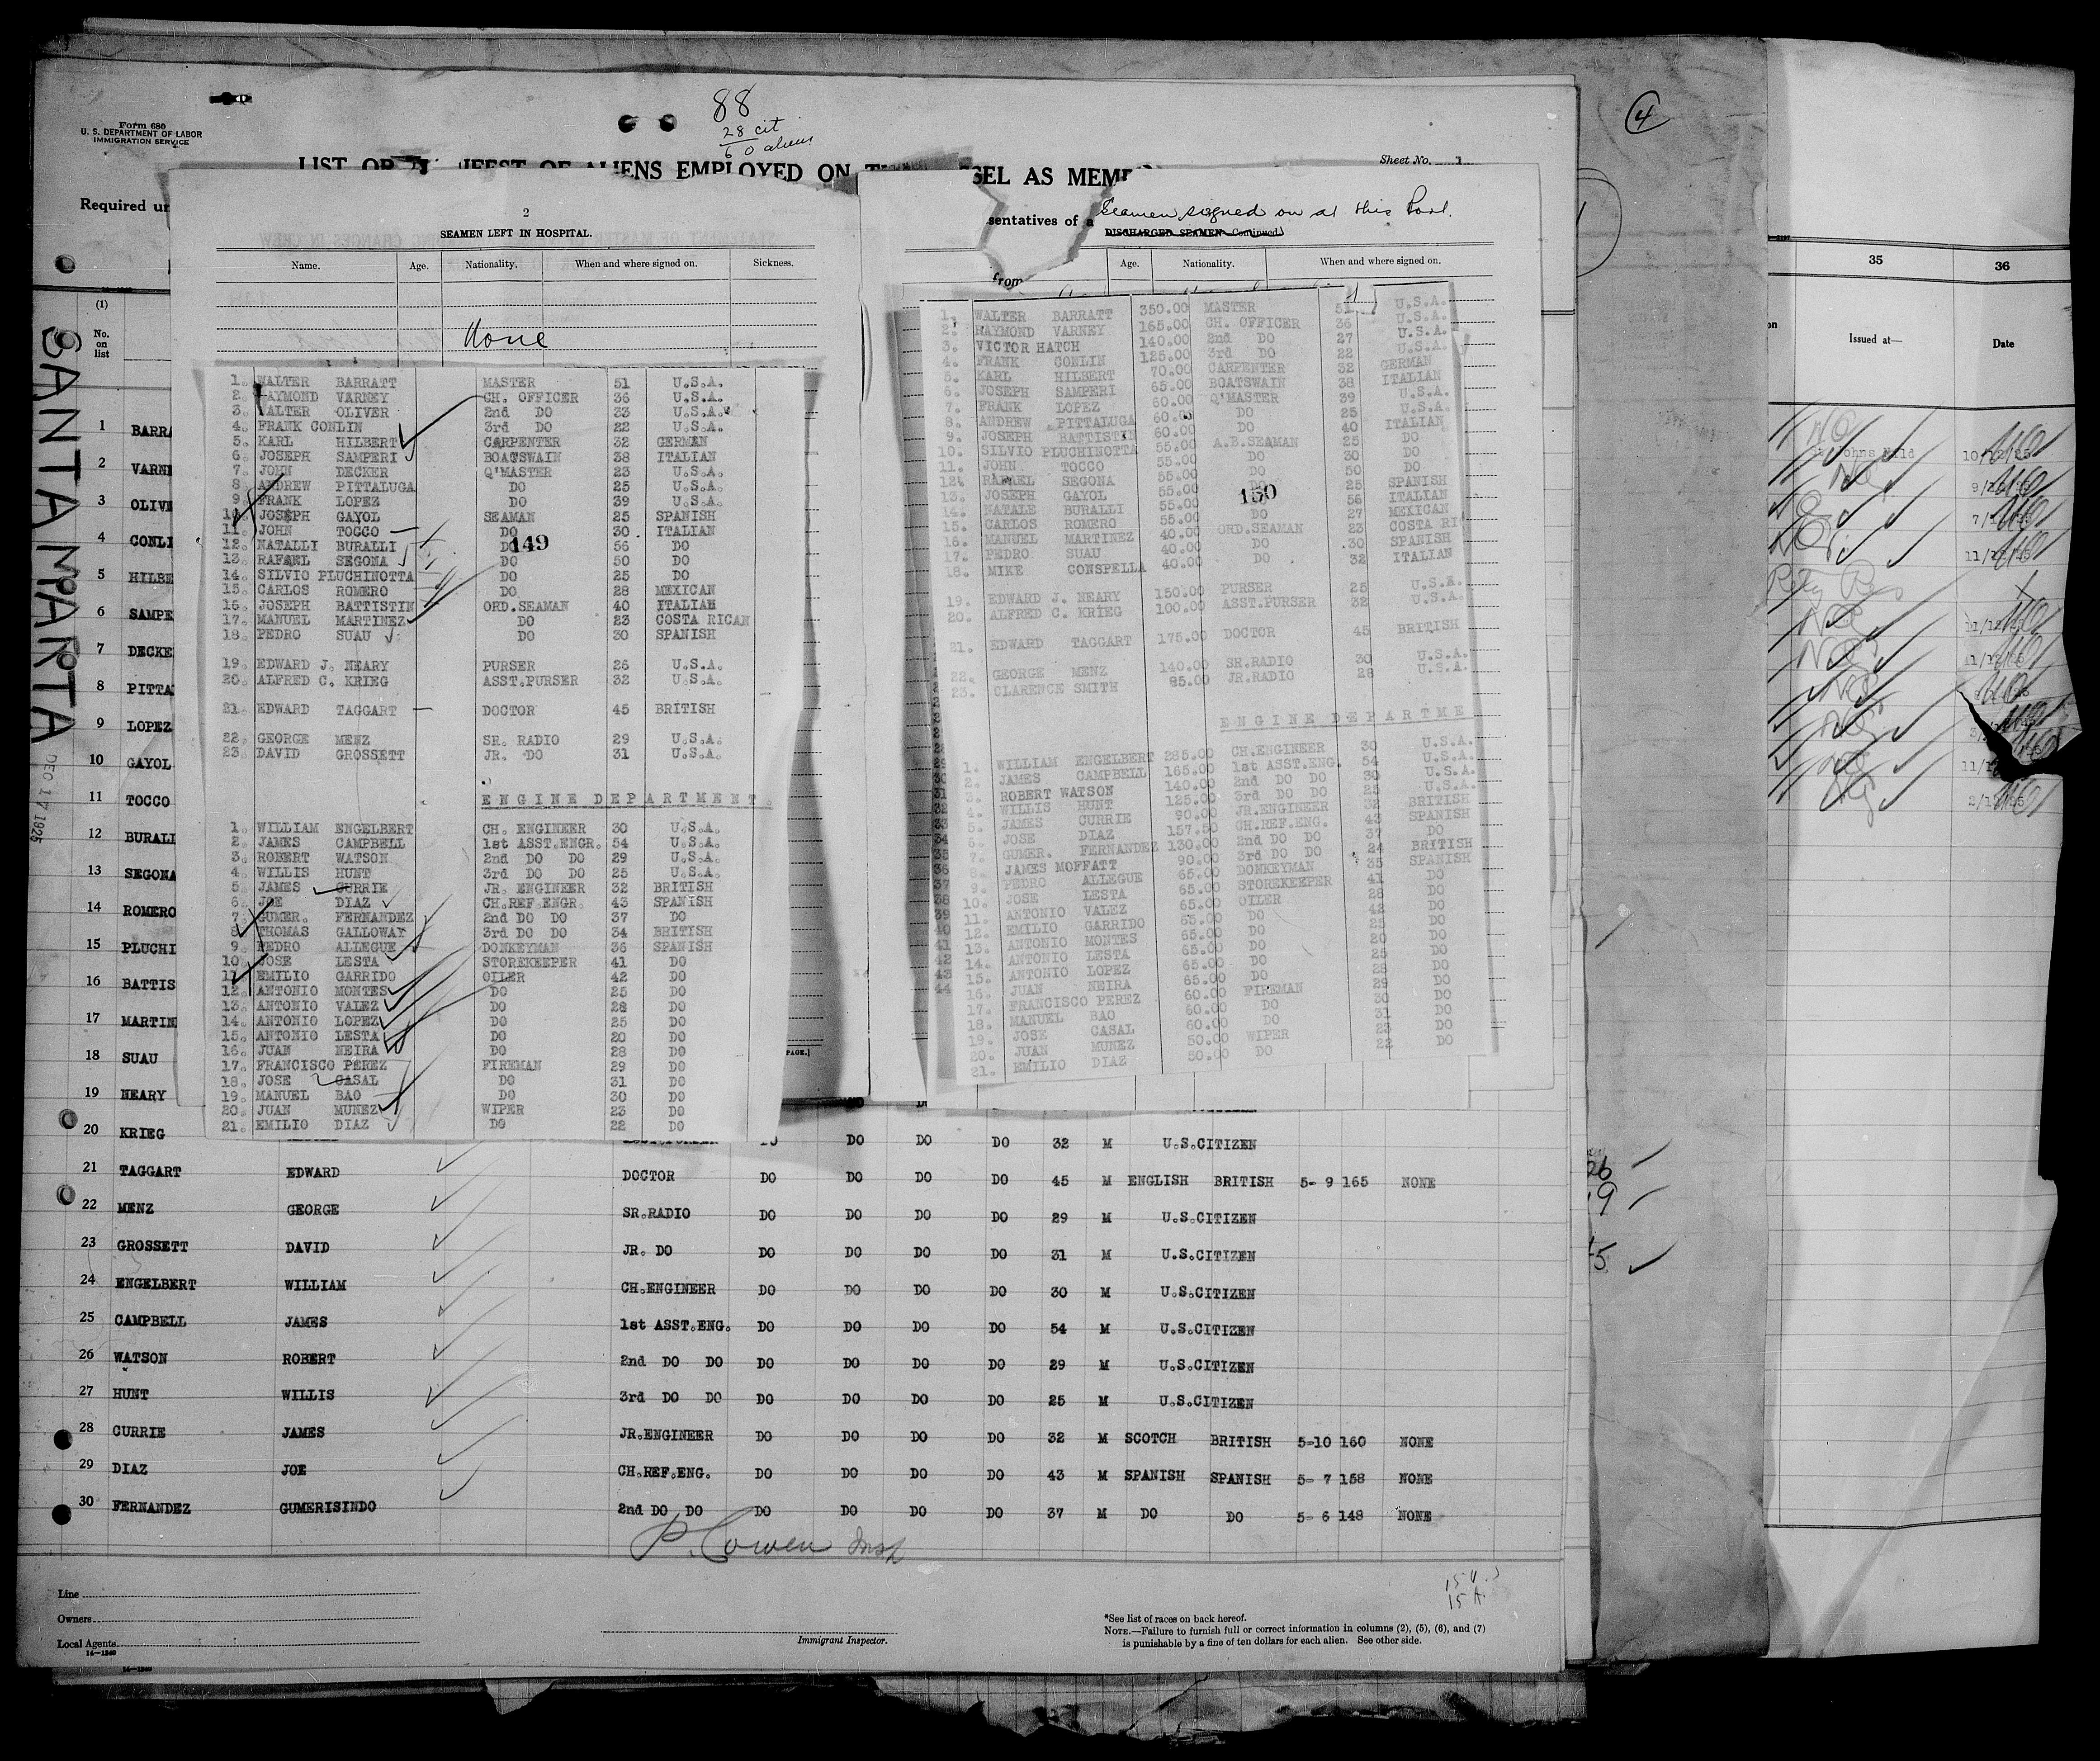 88
28 cit
60 aliens
4
Form 680
U. S. DEPARTMENT OF LABOR
IMMIGRATION SERVICE
Sheet No. 1
LIST OR IFEST OF ALIENS EMPLOYED ON SEL AS MEM
Required un
sentatives of a
from
SANTA MARTA
DEC 17 1925
(1)
No.
on
list
2
SEAMEN LEFT IN HOSPITAL.
Name. Age. Nationality. When and where signed on. Sickness.
None
1. WALTER BARRATT MASTER 51 U.S.A.
2. RAYMOND VARNEY CH. OFFICER 36 U.S.A.
3. WALTER OLIVER 2nd DO 33 U.S.A.
4. FRANK CONLIN 3rd DO 22 U.S.A.
5. KARL HILBERT CARPENTER 32 GERMAN
6. JOSEPH SAMPERI BOATSWAIN 38 ITALIAN
7. JOHN DECKER Q'MASTER 23 U.S.A.
8. ANDREW PITTALUGA DO 25 U.S.A.
9. FRANK LOPEZ DO 39 U.S.A.
10. JOSEPH GAYOL SEAMAN 25 SPANISH
11. JOHN TOCCO DO 30 ITALIAN
12. NATALLI BURALLI DO 56 DO
149
13. RAFAEL SEGONA DO 50 DO
14. SILVIO PLUCHINOTTA DO 25 DO
15. CARLOS ROMERO DO 28 MEXICAN
16. JOSEPH BATTISTIN ORD.SEAMAN 40 ITALIAN
17. MANUEL MARTINEZ DO 23 COSTA RICAN
18. PEDRO SUAU DO 30 SPANISH
19. EDWARD J. NEARY PURSER 26 U.S.A.
20. ALFRED C. KRIEG ASST.PURSER 32 U.S.A.
21. EDWARD TAGGART DOCTOR 45 BRITISH
22. GEORGE MENZ SR. RADIO 29 U.S.A.
23. DAVID GROSSETT JR. DO 31 U.S.A.
ENGINE DEPARTMENT.
1. WILLIAM ENGELBERT CH. ENGINEER 30 U.S.A.
2. JAMES CAMPBELL 1st ASST.ENGR. 54 U.S.A.
3. ROBERT WATSON 2nd DO DO 29 U.S.A.
4. WILLIS HUNT 3rd DO DO 25 U.S.A.
5. JAMES CURRIE JR. ENGINEER 32 BRITISH
6. JOE DIAZ CH.REF.ENGR. 43 SPANISH
7. GUMER. FERNANDEZ 2nd DO DO 37 DO
8. THOMAS GALLOWAY 3rd DO DO 34 BRITISH
9. PEDRO ALLEGUE DONKEYMAN 36 SPANISH
10. JOSE LESTA STOREKEEPER 41 DO
11. EMILIO GARRIDO OILER 42 DO
12. ANTONIO MONTES DO 25 DO
13. ANTONIO VALEZ DO 28 DO
14. ANTONIO LOPEZ DO 25 DO
15. ANTONIO LESTA DO 20 DO
16. JUAN NEIRA DO 28 DO
17. FRANCISCO PEREZ FIREMAN 29 DO
18. JOSE CASAL DO 31 DO
19. MANUEL BAO DO 30 DO
20. JUAN MUNEZ WIPER 23 DO
21. EMILIO DIAZ DO 22 DO
Seamen signed on at this Port.
DISCHARGED SEAMEN—Continued.
Age. Nationality. When and where signed on.
1. WALTER BARRATT 350.00 MASTER 51 U.S.A.
2. RAYMOND VARNEY 165.00 CH. OFFICER 36 U.S.A.
3. VICTOR HATCH 140.00 2nd DO 27 U.S.A.
4. FRANK CONLIN 125.00 3rd DO 22 U.S.A.
5. KARL HILBERT 70.00 CARPENTER 32 GERMAN
6. JOSEPH SAMPERI 65.00 BOATSWAIN 38 ITALIAN
7. FRANK LOPEZ 60.00 Q'MASTER 39 U.S.A.
8. ANDREW PITTALUGA 60.00 DO 25 U.S.A.
9. JOSEPH BATTISTIN 60.00 DO 40 ITALIAN
10. SILVIO PLUCHINOTTA 55.00 A.B.SEAMAN 25 DO
11. JOHN TOCCO 55.00 DO 30 DO
12. RAFAEL SEGONA 55.00 DO 50 DO
13. JOSEPH GAYOL 55.00 DO 25 SPANISH
150
14. NATALE BURALLI 55.00 DO 56 ITALIAN
15. CARLOS ROMERO 55.00 DO 27 MEXICAN
16. MANUEL MARTINEZ 40.00 ORD.SEAMAN 23 COSTA RI
17. PEDRO SUAU 40.00 DO 30 SPANISH
18. MIKE CONSPELLA 40.00 DO 32 ITALIAN
19. EDWARD J. NEARY 150.00 PURSER 25 U.S.A.
20. ALFRED C. KRIEG 100.00 ASST.PURSER 32 U.S.A.
21. EDWARD TAGGART 175.00 DOCTOR 45 BRITISH
22. GEORGE MENZ 140.00 SR.RADIO 30 U.S.A.
23. CLARENCE SMITH 85.00 JR.RADIO 28 U.S.A.
ENGINE DEPARTME
1. WILLIAM ENGELBERT 285.00 CH.ENGINEER 30 U.S.A.
2. JAMES CAMPBELL 165.00 1st ASST.ENG. 54 U.S.A.
3. ROBERT WATSON 140.00 2nd DO DO 30 U.S.A.
4. WILLIS HUNT 125.00 3rd DO DO 25 U.S.A.
5. JAMES CURRIE 90.00 JR.ENGINEER 32 BRITISH
6. JOSE DIAZ 157.50 CH.REF.ENG. 43 SPANISH
7. GUMER. FERNANDEZ 130.00 2nd DO DO 37 DO
8. JAMES MOFFATT 90.00 3rd DO DO 24 BRITISH
9. PEDRO ALLEGUE 65.00 DONKEYMAN 35 SPANISH
10. JOSE LESTA 65.00 STOREKEEPER 41 DO
11. ANTONIO VALEZ 65.00 OILER 28 DO
12. EMILIO GARRIDO 65.00 DO 42 DO
13. ANTONIO MONTES 65.00 DO 25 DO
14. ANTONIO LESTA 65.00 DO 20 DO
15. ANTONIO LOPEZ 65.00 DO 25 DO
16. JUAN NEIRA 65.00 DO 28 DO
17. FRANCISCO PEREZ 60.00 FIREMAN 29 DO
18. MANUEL BAO 60.00 DO 30 DO
19. JOSE CASAL 60.00 DO 31 DO
20. JUAN MUNEZ 50.00 WIPER 23 DO
21. EMILIO DIAZ 50.00 DO 22 DO
PAGE.]
1 BARRA
2 VARNE
3 OLIVE
4 CONLI
5 HILBE
6 SAMPE
7 DECKE
8 PITTA
9 LOPEZ
10 GAYOL
11 TOCCO
12 BURALI
13 SEGONA
14 ROMERO
15 PLUCHI
16 BATTIS
17 MARTIN
18 SUAU
19 NEARY
20 KRIEG DO DO DO 32 M U.S.CITIZEN
21 TAGGART EDWARD DOCTOR DO DO DO DO 45 M ENGLISH BRITISH 5- 9 165 NONE
22 MENZ GEORGE SR.RADIO DO DO DO DO 29 M U.S.CITIZEN
23 GROSSETT DAVID JR. DO DO DO DO DO 31 M U.S.CITIZEN
24 ENGELBERT WILLIAM CH.ENGINEER DO DO DO DO 30 M U.S.CITIZEN
25 CAMPBELL JAMES 1st ASST.ENG. DO DO DO DO 54 M U.S.CITIZEN
26 WATSON ROBERT 2nd DO DO DO DO DO DO 29 M U.S.CITIZEN
27 HUNT WILLIS 3rd DO DO DO DO DO DO 25 M U.S.CITIZEN
28 CURRIE JAMES JR.ENGINEER DO DO DO DO 32 M SCOTCH BRITISH 5-10 160 NONE
29 DIAZ JOE CH.REF.ENG. DO DO DO DO 43 M SPANISH SPANISH 5- 7 158 NONE
30 FERNANDEZ GUMERISINDO 2nd DO DO DO DO DO DO 37 M DO DO 5- 6 148 NONE
P. Cowen Insp
Line
Owners
Local Agents
14—1240
Immigrant Inspector.
15 A.
*See list of races on back hereof.
NOTE.—Failure to furnish full or correct information in columns (2), (5), (6), and (7)
is punishable by a fine of ten dollars for each alien. See other side.
35 36
Issued at— Date